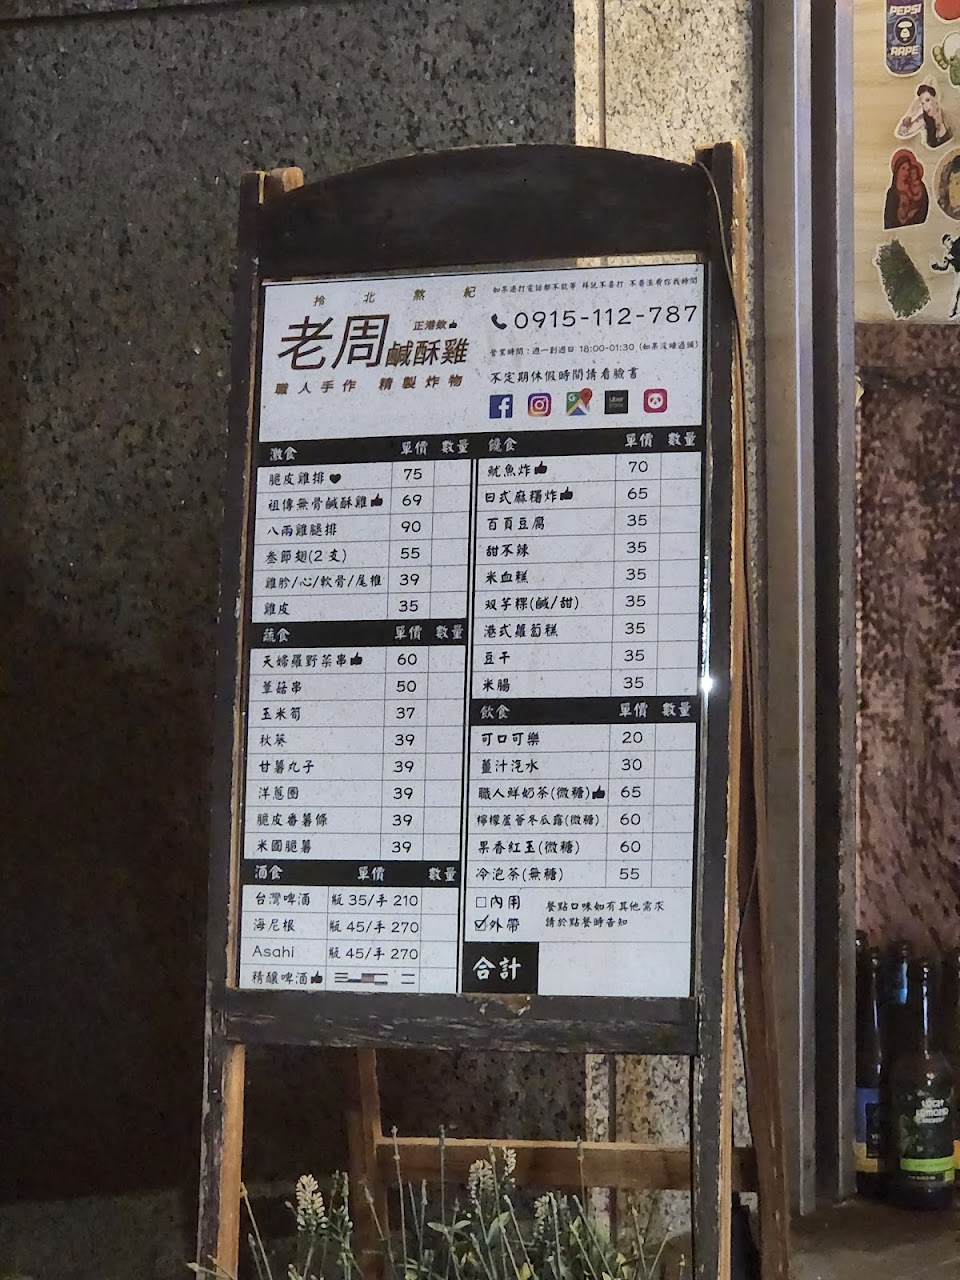 拎北熬紀
老周鹹酥雞
正港欸
職人手作 精製炸物
如果連打電話都不能等 拜託不要打 不要浪費你我時間
0915-112-787
營業時間：週一到週日 18:00-01:30 (如果沒睡過頭)
不定期休假時間請看臉書
激食 單價 數量
脆皮雞排 75
祖傳無骨鹹酥雞 69
八兩雞腿排 90
叁節翅(2支) 55
雞胗/心/軟骨/尾椎 39
雞皮 35
蔬食 單價 數量
天婦羅野菜串 60
蕈菇串 50
玉米筍 37
秋葵 39
甘薯丸子 39
洋蔥圈 39
脆皮番薯條 39
米國脆薯 39
酒食 單價 數量
台灣啤酒 瓶 35/手 210
海尼根 瓶 45/手 270
Asahi 瓶 45/手 270
精釀啤酒
饞食 單價 數量
魷魚炸 70
日式麻糬炸 65
百頁豆腐 35
甜不辣 35
米血糕 35
双芋粿(鹹/甜) 35
港式蘿蔔糕 35
豆干 35
米腸 35
飲食 單價 數量
可口可樂 20
薑汁汽水 30
職人鮮奶茶(微糖) 65
檸檬蘆薈冬瓜露(微糖) 60
果香紅玉(微糖) 60
冷泡茶(無糖) 55
內用
外帶
餐點口味如有其他需求
請於點餐時告知
合計
PEPSI
AAPE
LOCH
LOMOND